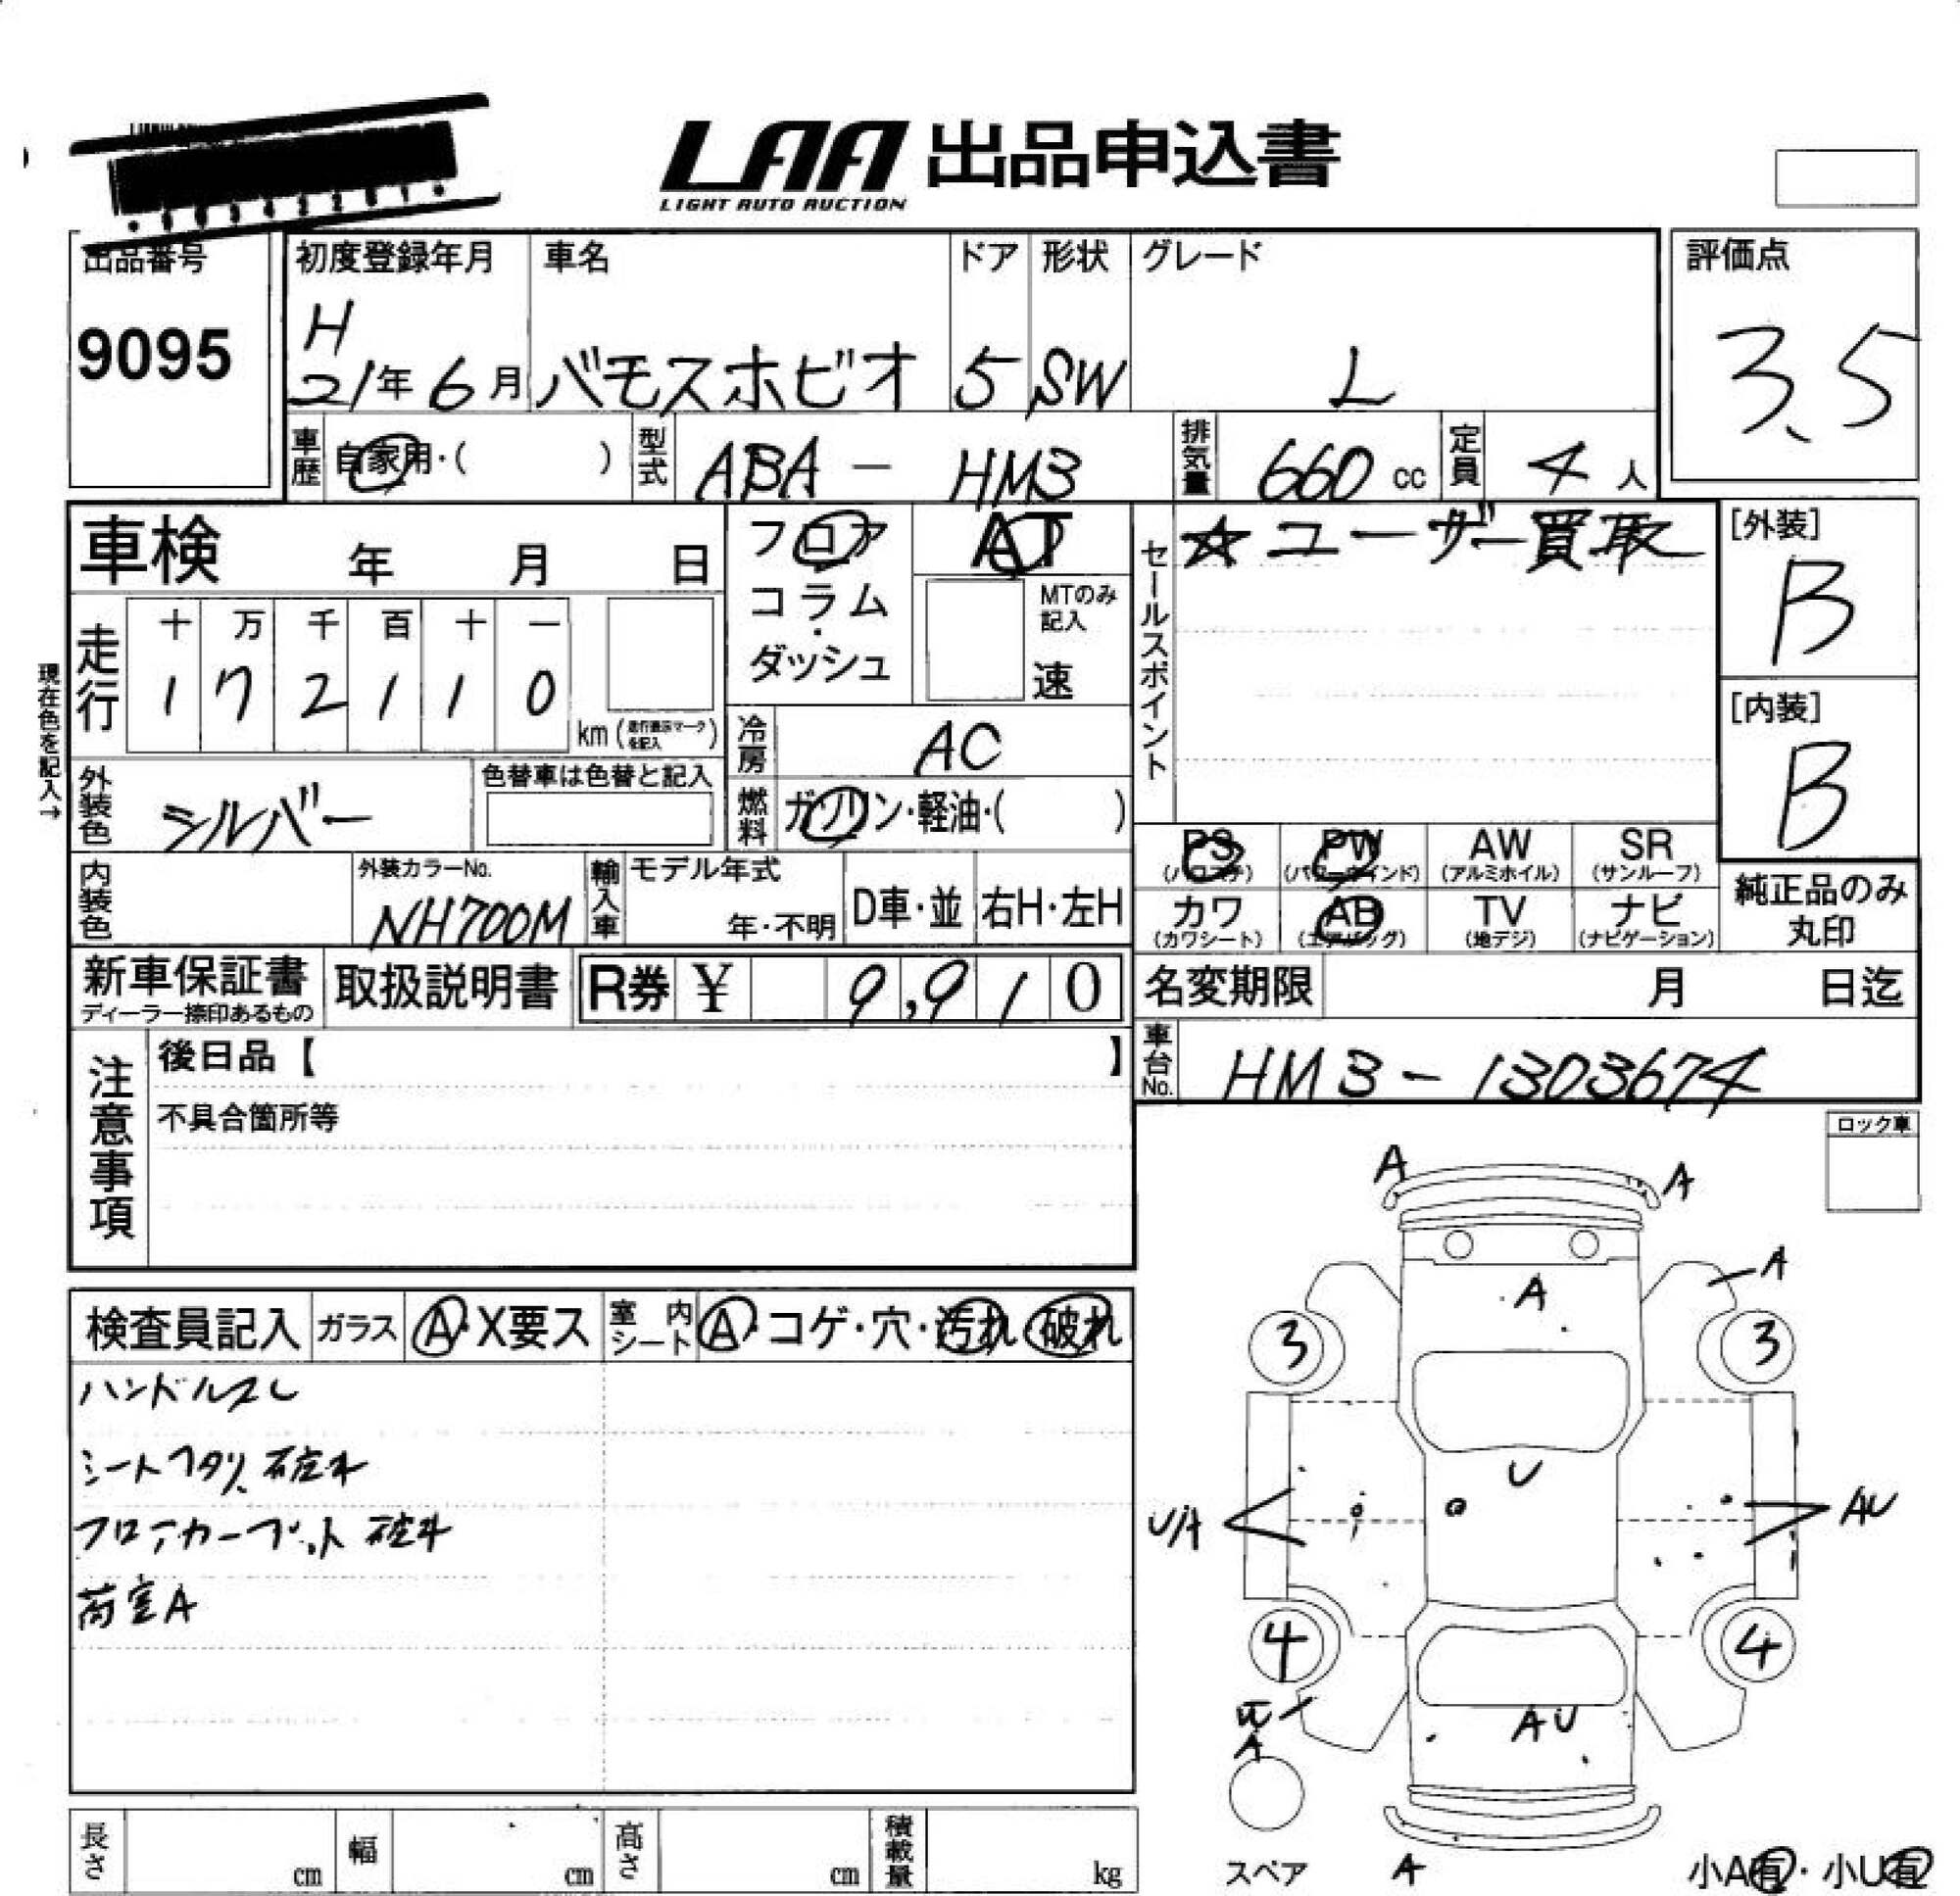 LAA 出品申込書
LIGHT AUTO AUCTION
出品番号
9095
初度登録年月 車名 ドア 形状 グレード
H
21年 6月 バモスホビオ 5 SW L
評価点
3.5
車歴 自家用・( ) 型式 ABA - HM3 排気量 660 cc 定員 4 人
車検 年 月 日
フロア
コラム
・
ダッシュ
AT
MTのみ
記入
速
セールスポイント
☆ユーザー買取
[外装]
B
[内装]
B
現在色を記入→
走行
十 万 千 百 十 一
1 7 2 1 1 0
km (走行表示マークを記入)
冷房 AC
外装色 シルバー
色替車は色替と記入
燃料 ガソリン・軽油・( )
PS PW AW SR
(パワステ) (パワーウインド) (アルミホイル) (サンルーフ)
カワ AB TV ナビ
(カワシート) (エアバッグ) (地デジ) (ナビゲーション)
純正品のみ
丸印
内装色
外装カラーNo.
NH700M
輸入車
モデル年式
年・不明
D車・並 右H・左H
新車保証書
ディーラー捺印あるもの
取扱説明書
R券 ¥ 9,910
名変期限 月 日迄
車台No. HM3-1303674
注意事項
後日品【 】
不具合箇所等
ロック車
検査員記入 ガラス A・X要ス 室内シート A・コゲ・穴・汚れ 破れ
ハンドルスレ
シートヘタリ、破れ
フロアカーペット 破れ
荷室A
A
A
A
A
3
3
U
U/A
AU
4
4
A
AU
A
スペア
小A有・小U有
長さ cm 幅 cm 高さ cm 積載量 kg